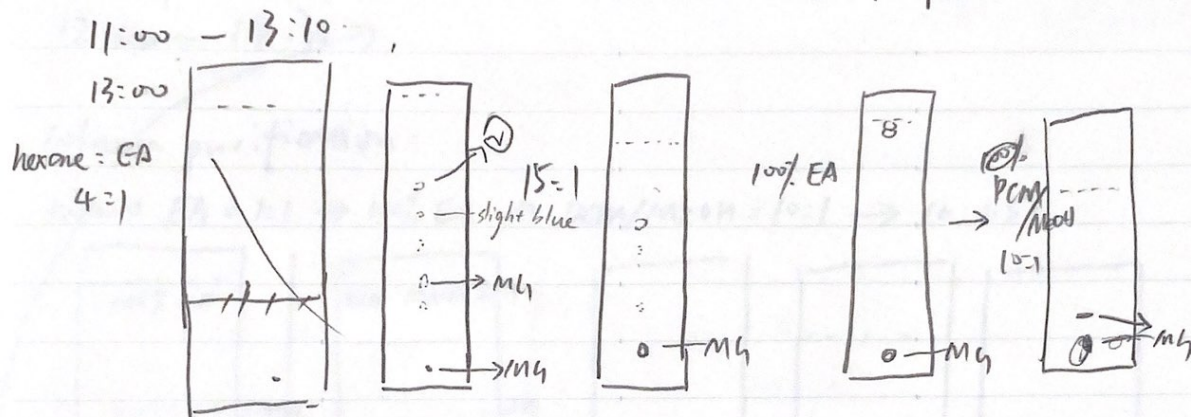 11:00 – 13:10
13:00
hexane = EA
4=1
slight blue
MG
MG
15=1
MG
100% EA
MG
DCM
/MeOH
10=1
MG